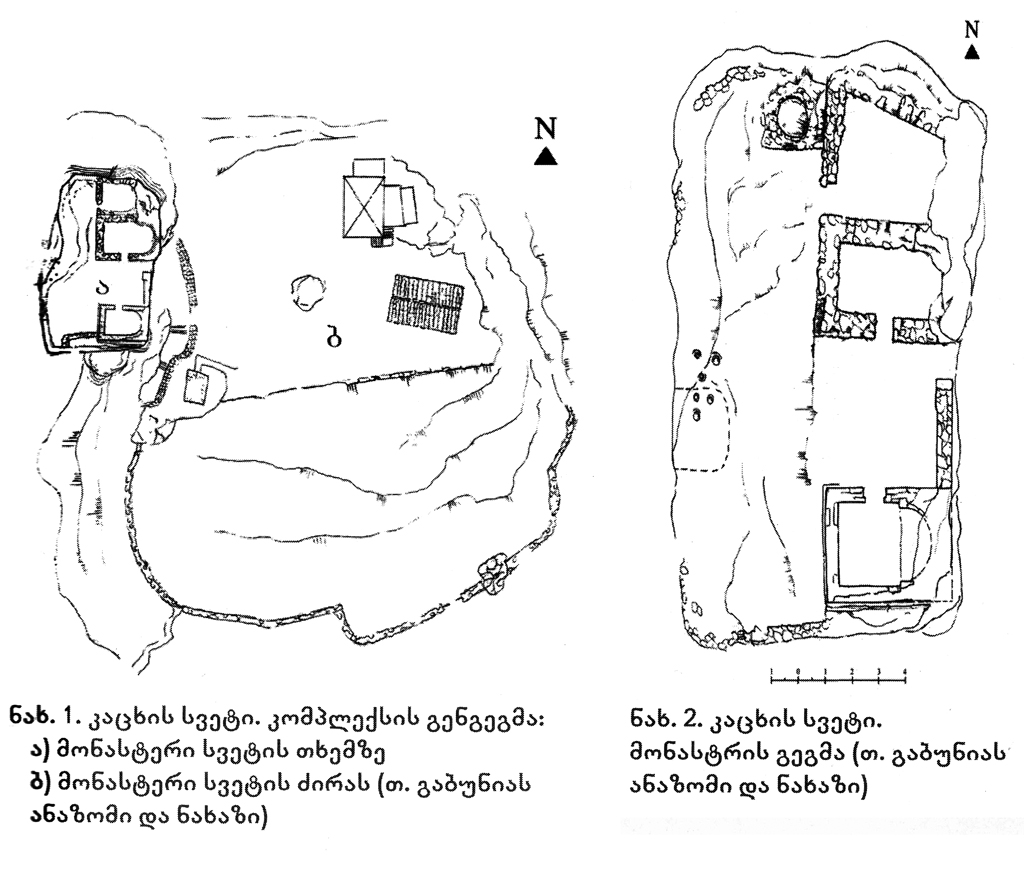 N
N
ა
ბ
1 0 1 2 3 4
ნახ. 1. კაცხის სვეტი. კომპლექსის გენგეგმა:
ა) მონასტერი სვეტის თხემზე
ბ) მონასტერი სვეტის ძირას (თ. გაბუნიას
ანაზომი და ნახაზი)
ნახ. 2. კაცხის სვეტი.
მონასტრის გეგმა (თ. გაბუნიას
ანაზომი და ნახაზი)